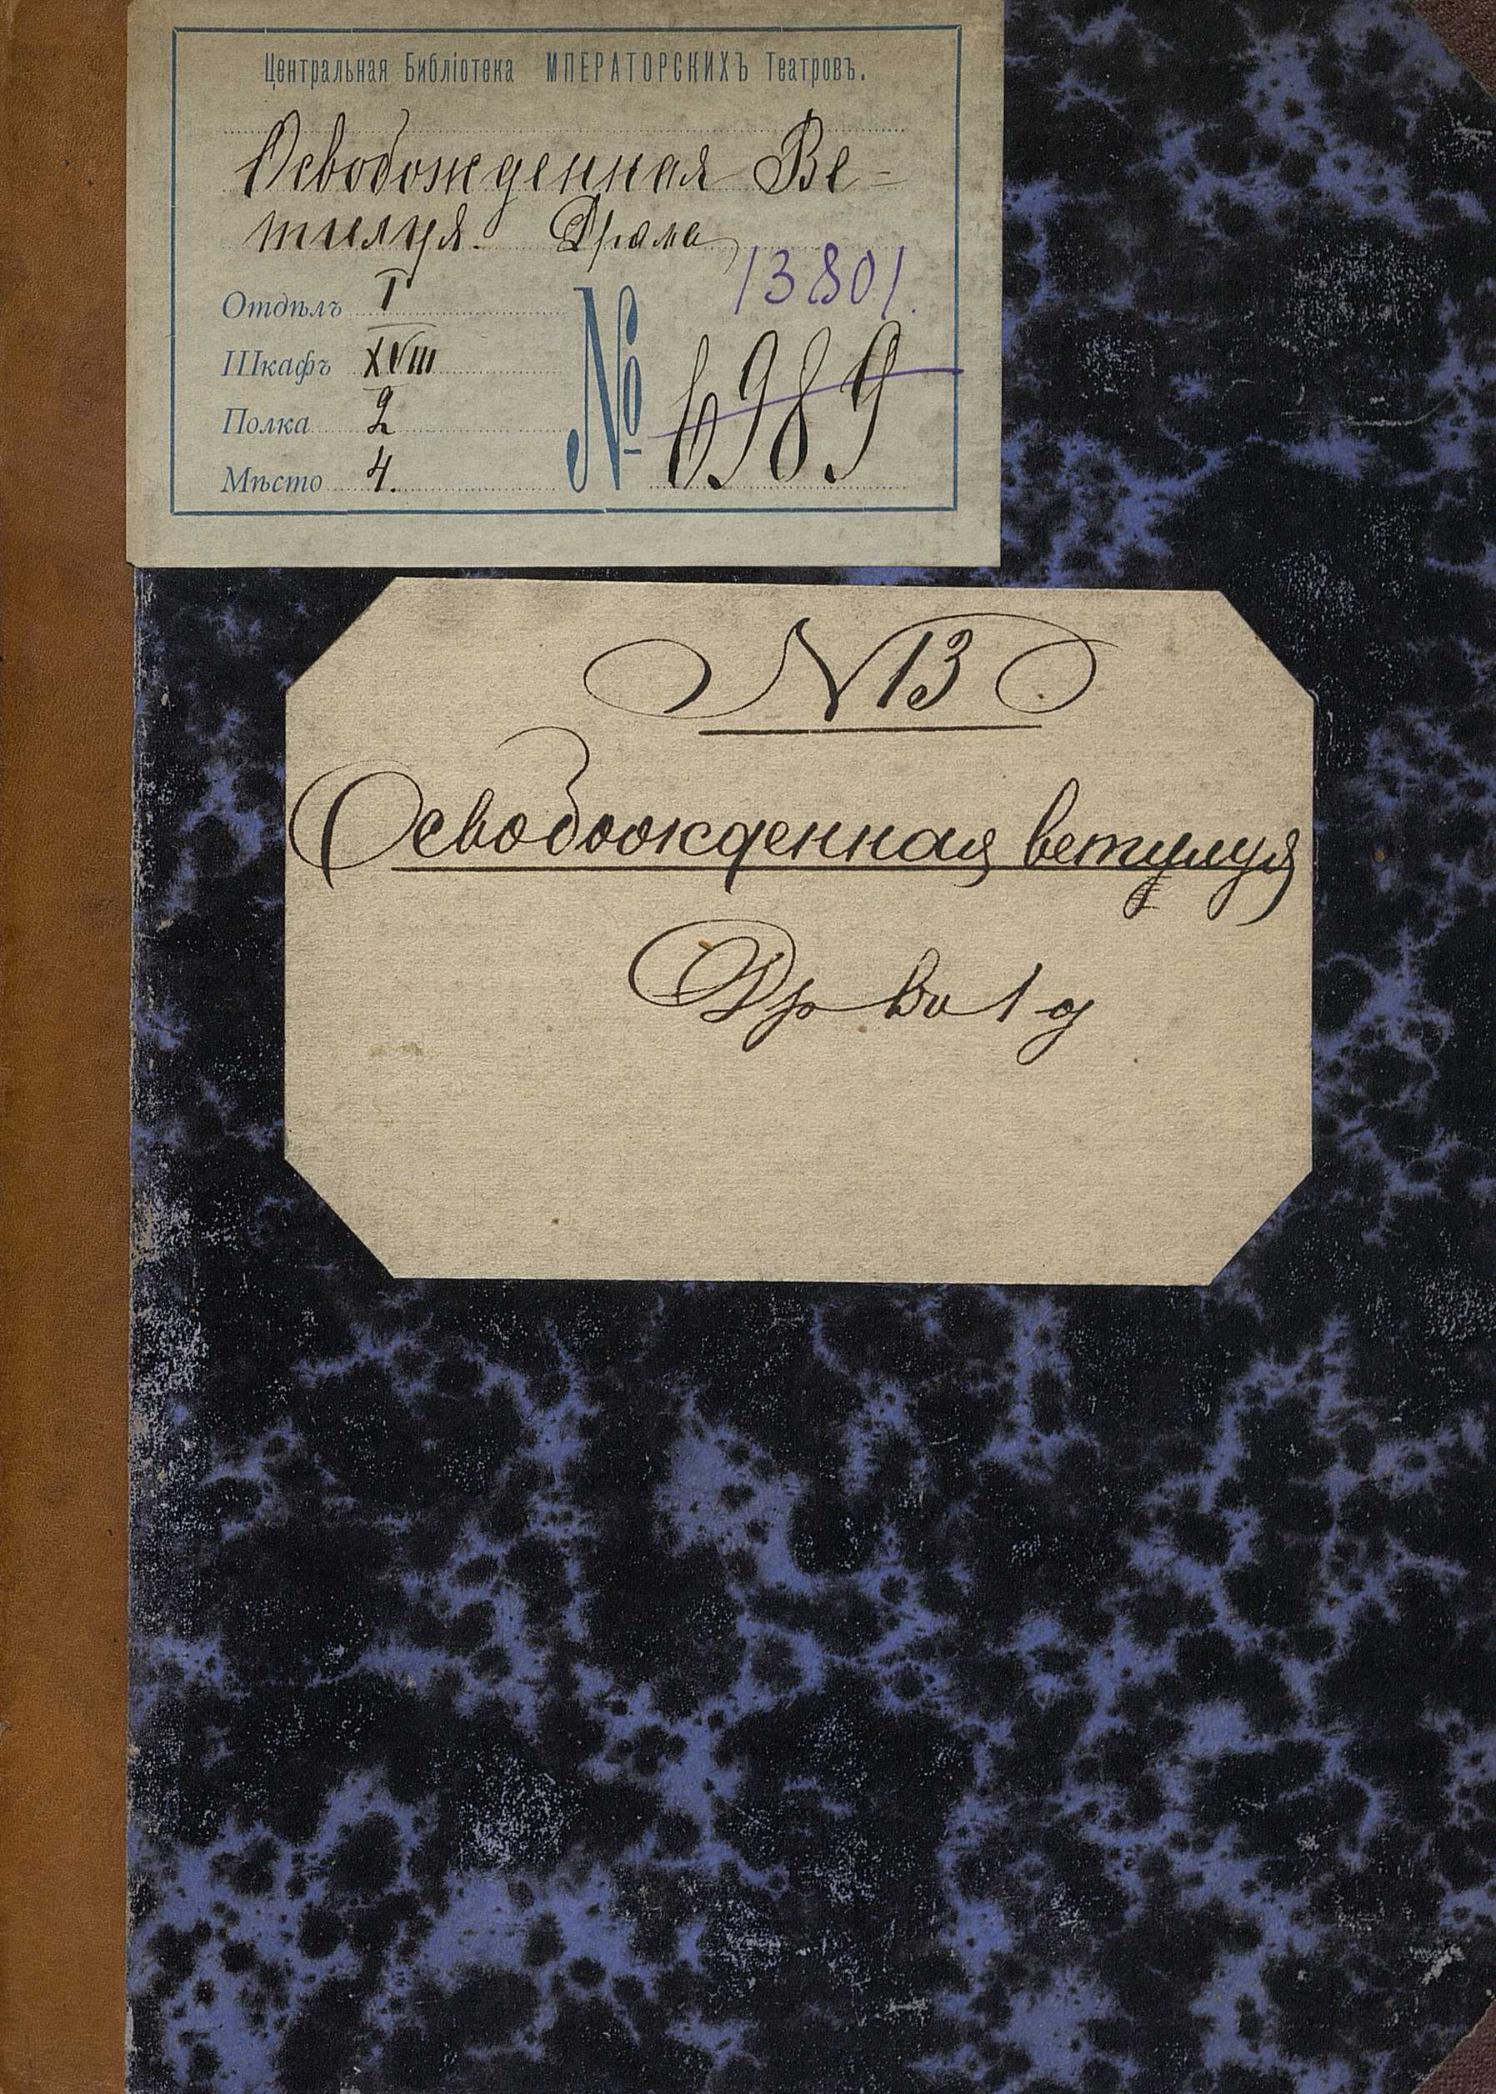 Центральная Библіотека МПЕРАТОРСКИХЪ Театровъ.
Освобожденная Ве-
тилуя. Драма
13801.
Отдѣлъ I
Шкафъ XVIII
Полка 2
Мѣсто 4.
№ 6989
N 13
Освобожденная ветулуя
Др во 1 д